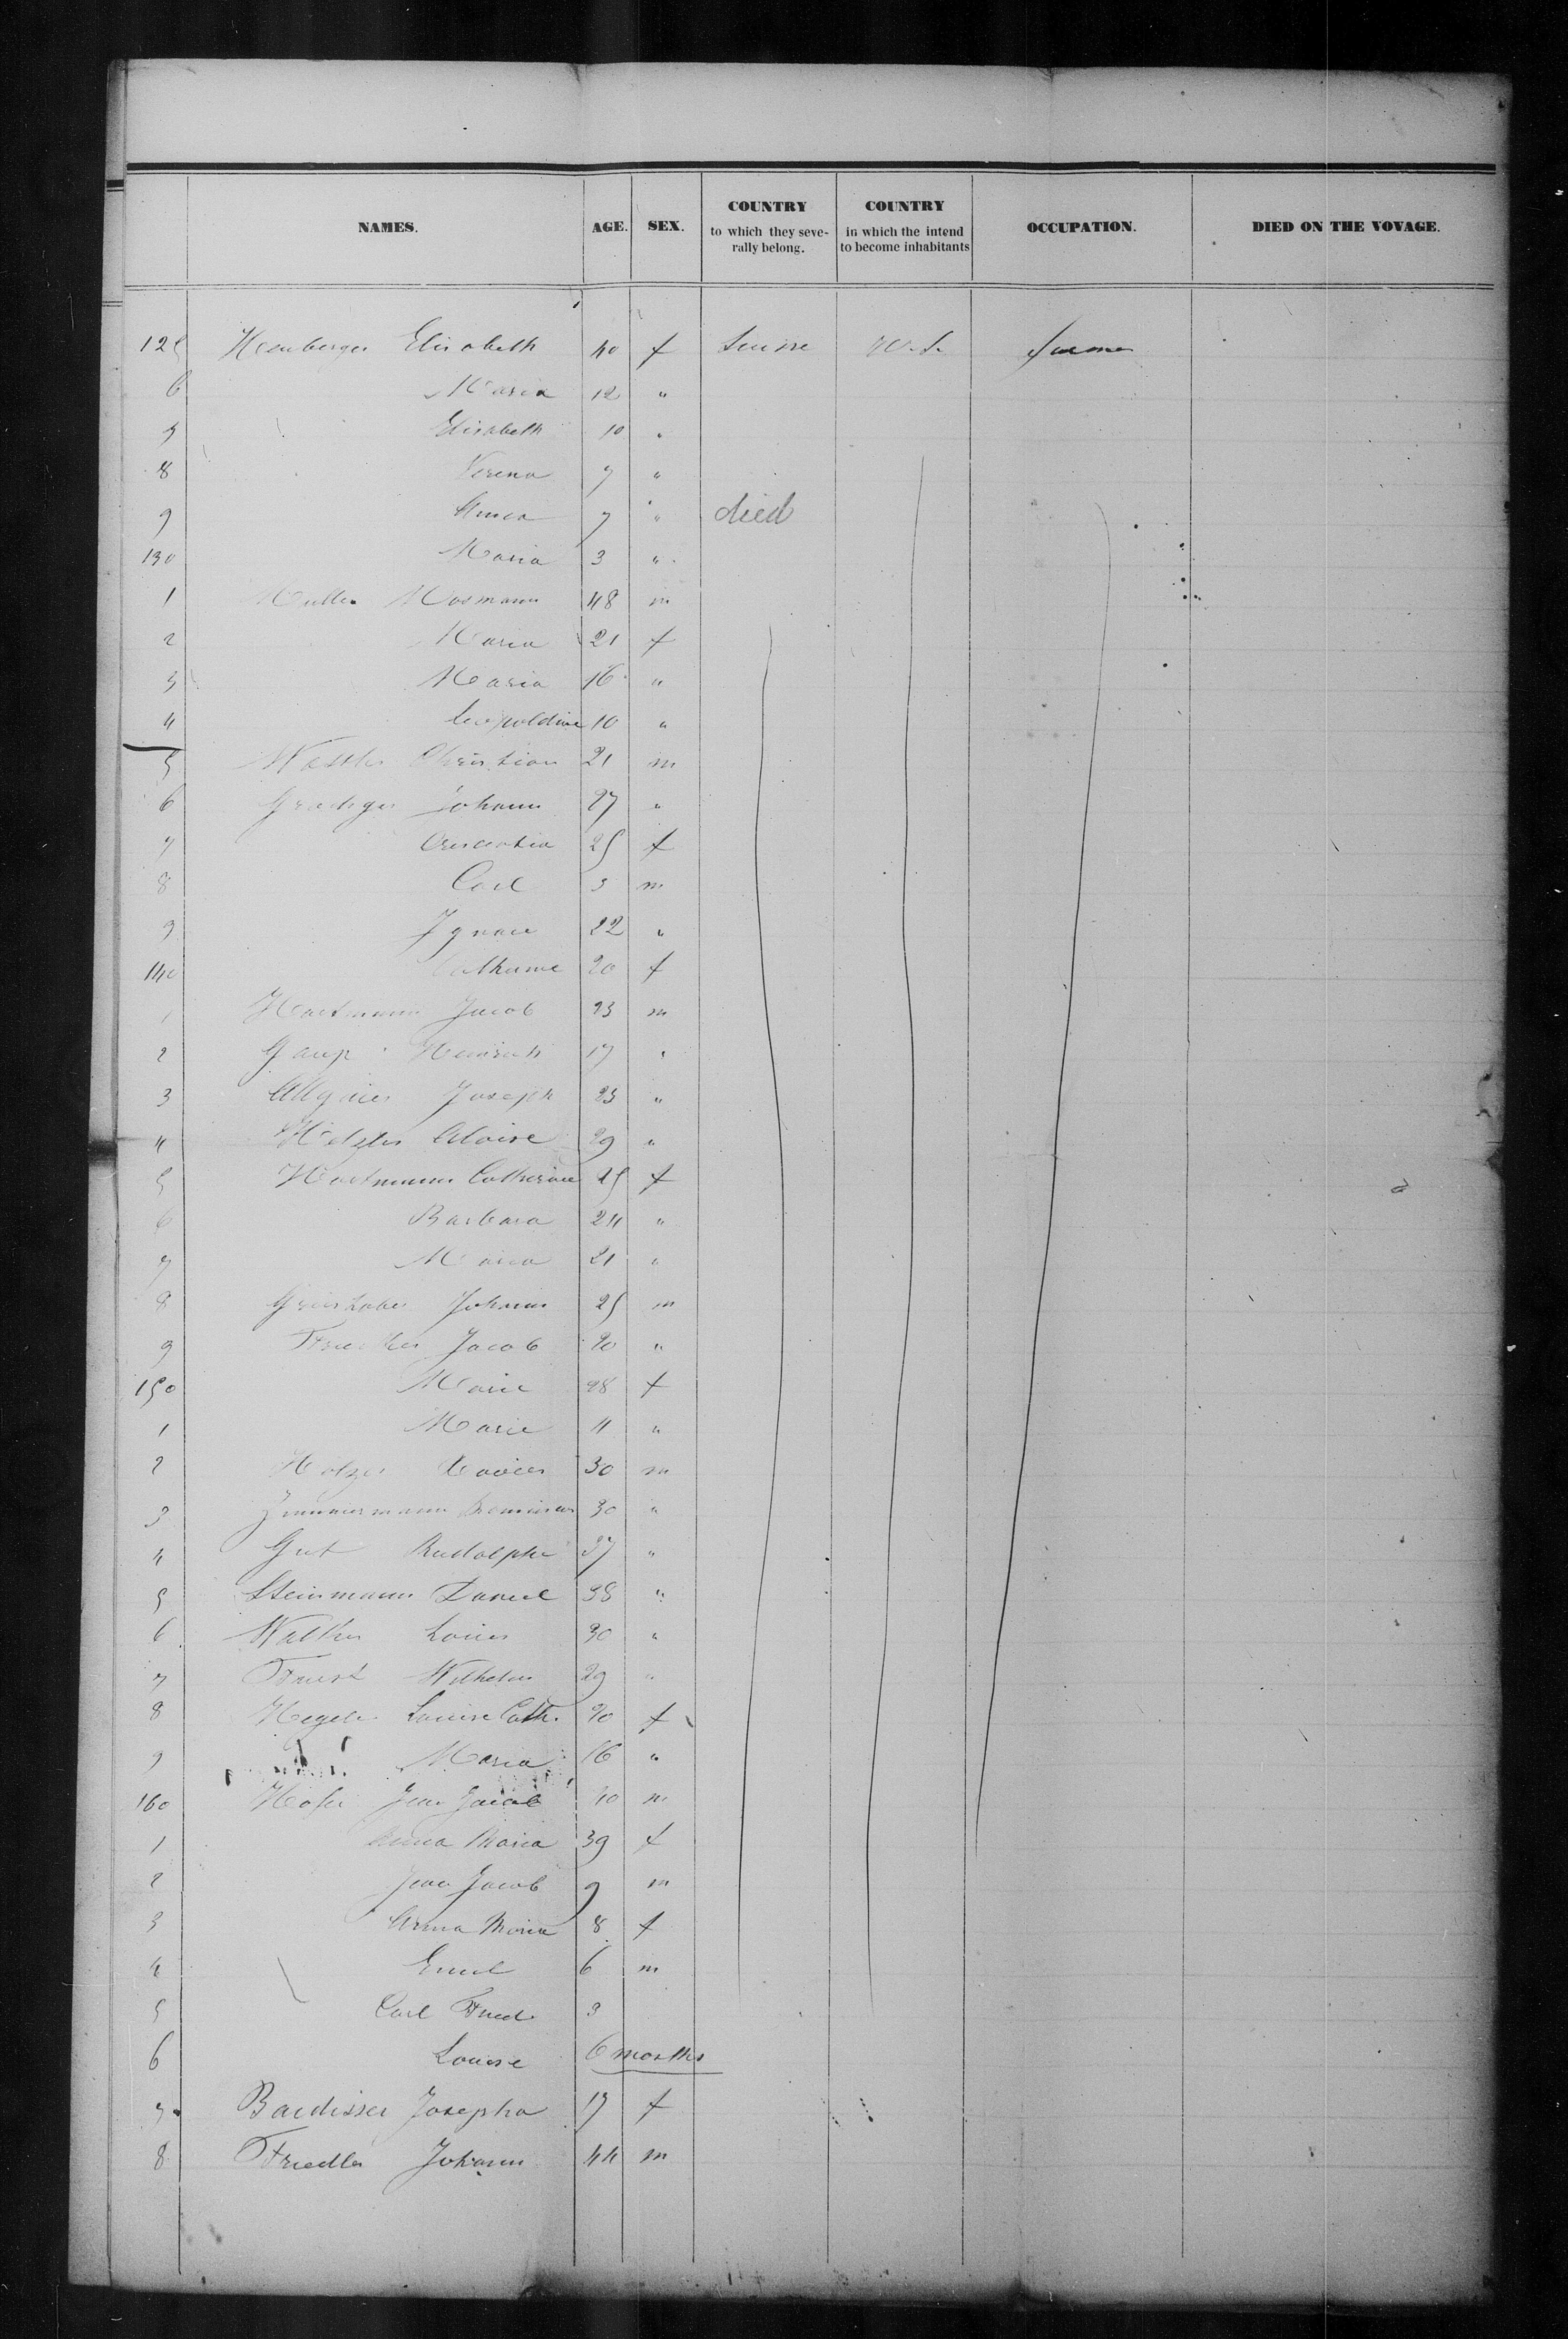 NAMES. AGE. SEX. COUNTRY to which they seve- rally belong. COUNTRY in which the intend to become inhabitants OCCUPATION. DIED ON THE VOVAGE.
125 Elisabeth 40 f Suisse farmer
6 Maria 12 "
7 Elisabeth 10 "
8 Verena 7 "
9 Anna 7 " died
130 Maria 3 "
1 Muller 48 m
2 Maria 21 f
3 Maria 16 "
4 Leopoldine 10 "
5 Christian 21 m
6 Johann 27 "
7 25 f
8 Carl 3 m
9 Ignace 22 "
140 20 f
1 Hartmann Jacob 23 m
2 Gaup Heinrich 17 "
3 Allgaier Joseph 23 "
4 Aloise 29 "
5 Hartmann Catherine 25 f
6 Barbara 24 "
7 Maria 21 "
8 Grieshaber Johann 25 m
9 Jacob "
150 Marie 28 f
1 Marie 4 "
2 Xavier 30 m
3 Zimmermann 30 "
4 Gut Rudolphe 37 "
5 Steinmann Daniel 38 "
6 Walther Louis 30 "
7 Faust Wilhelm 29 "
8 Louise Cath. 20 f
9 Maria 16 "
160 Jean Jacob 40 m
1 Anna Maria 39 f
2 Jean Jacob 9 m
3 Anna Maria 8 f
4 Emil 6 m
5 Carl Fried. 3
6 Louise 6 months
7 Josepha 17 f
8 Friedler Johann 44 m